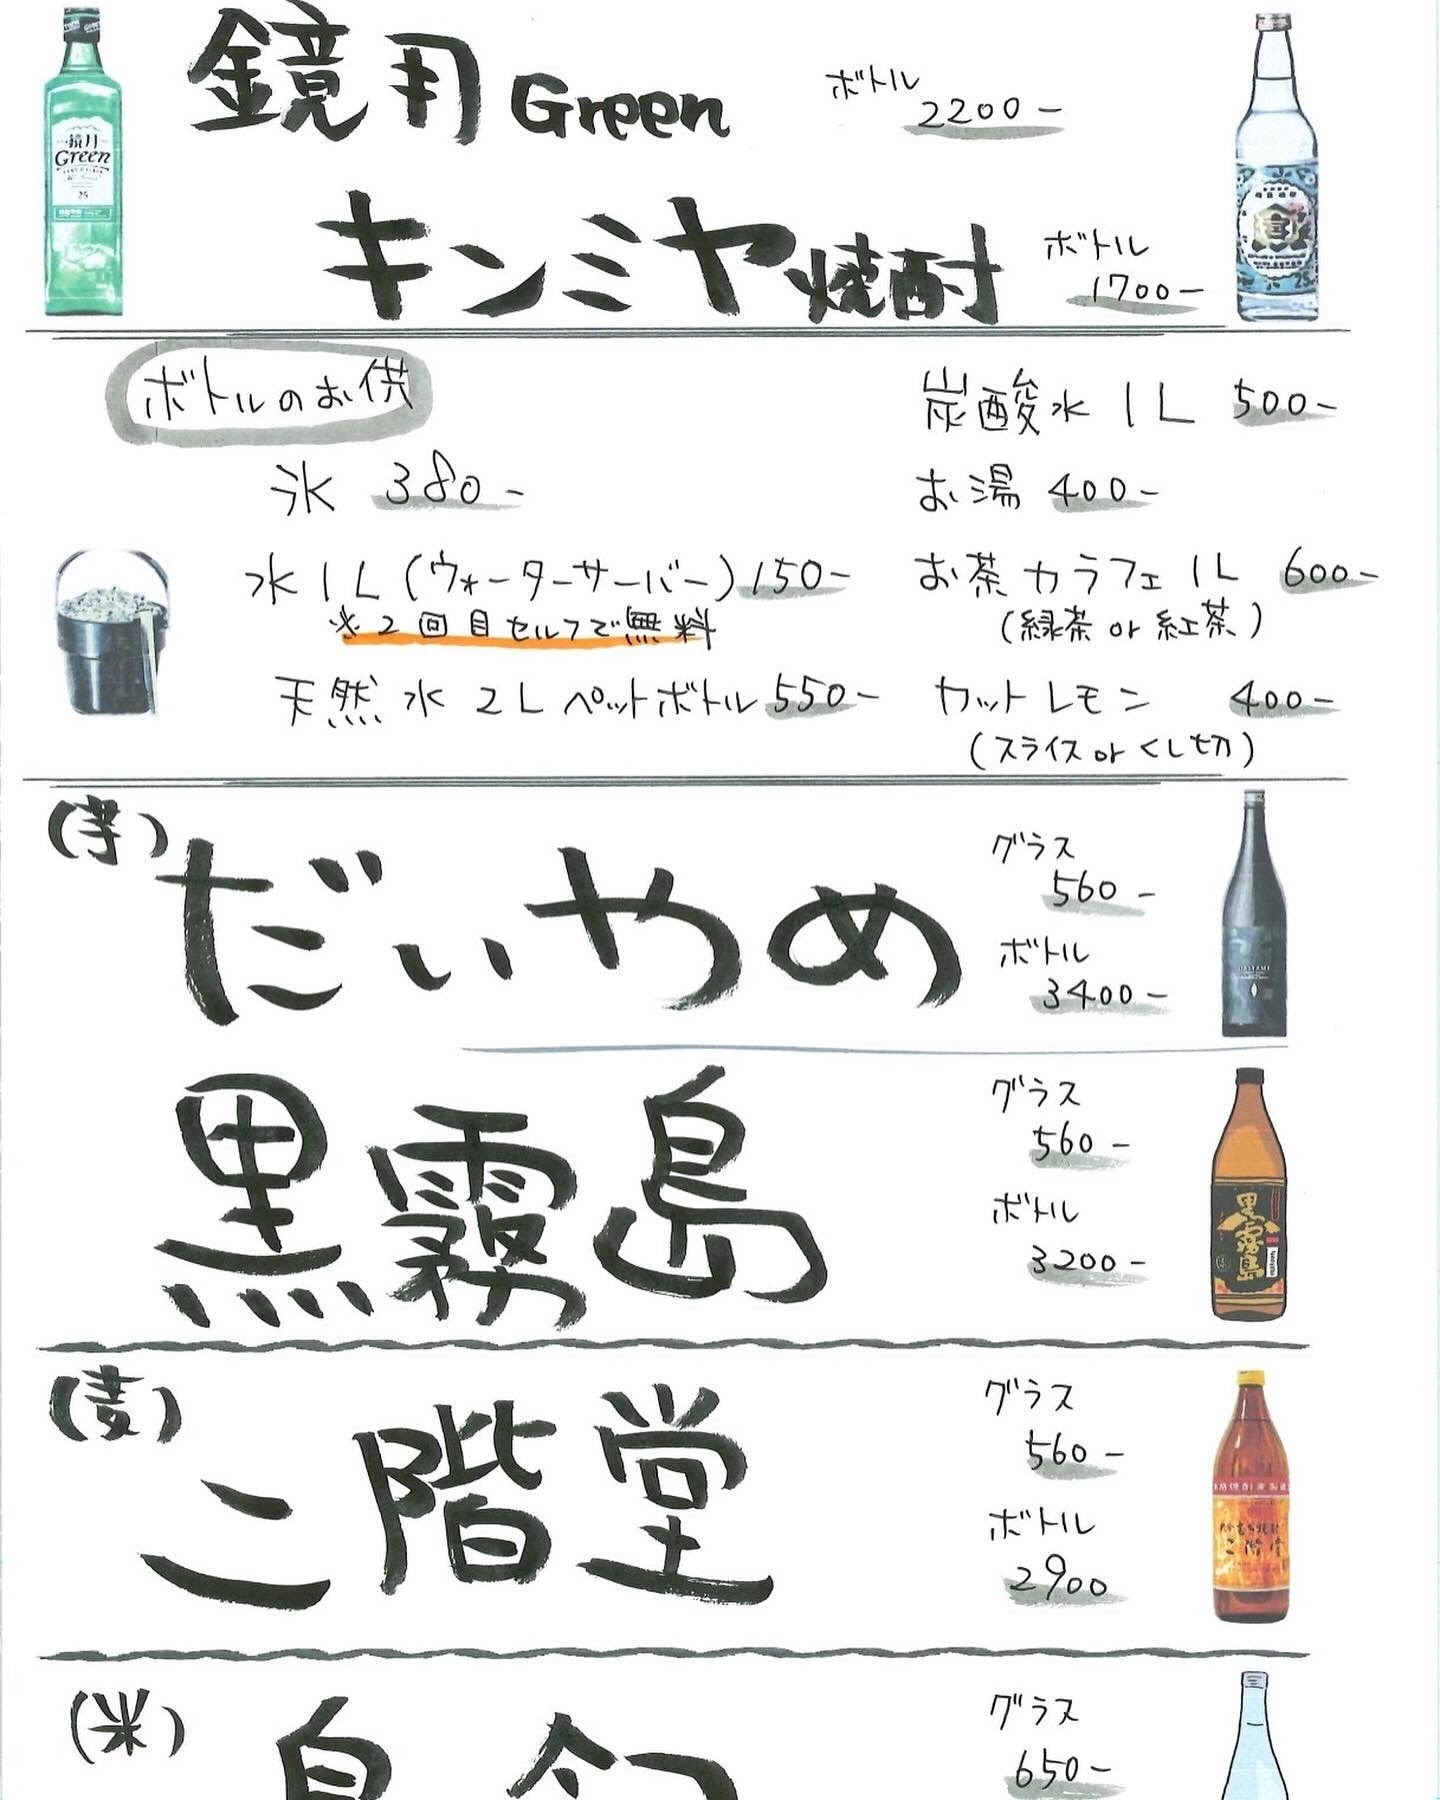 鏡月 Green
ボトル
2200-
キンミヤ焼酎
ボトル
1700-
ボトルのお供
氷 380-
水1L(ウォーターサーバー)150-
※2回目セルフで無料
天然水2Lペットボトル550-
炭酸水1L 500-
お湯 400-
お茶カラフェ1L 600-
(緑茶or紅茶)
カットレモン 400-
(スライスorくし切)
(芋)
だいやめ
グラス
560-
ボトル
3400-
黒霧島
グラス
560-
ボトル
3200-
(麦)
二階堂
グラス
560-
ボトル
2900
(米)
グラス
650-
鏡月
Green
25
黒霧島
二階堂